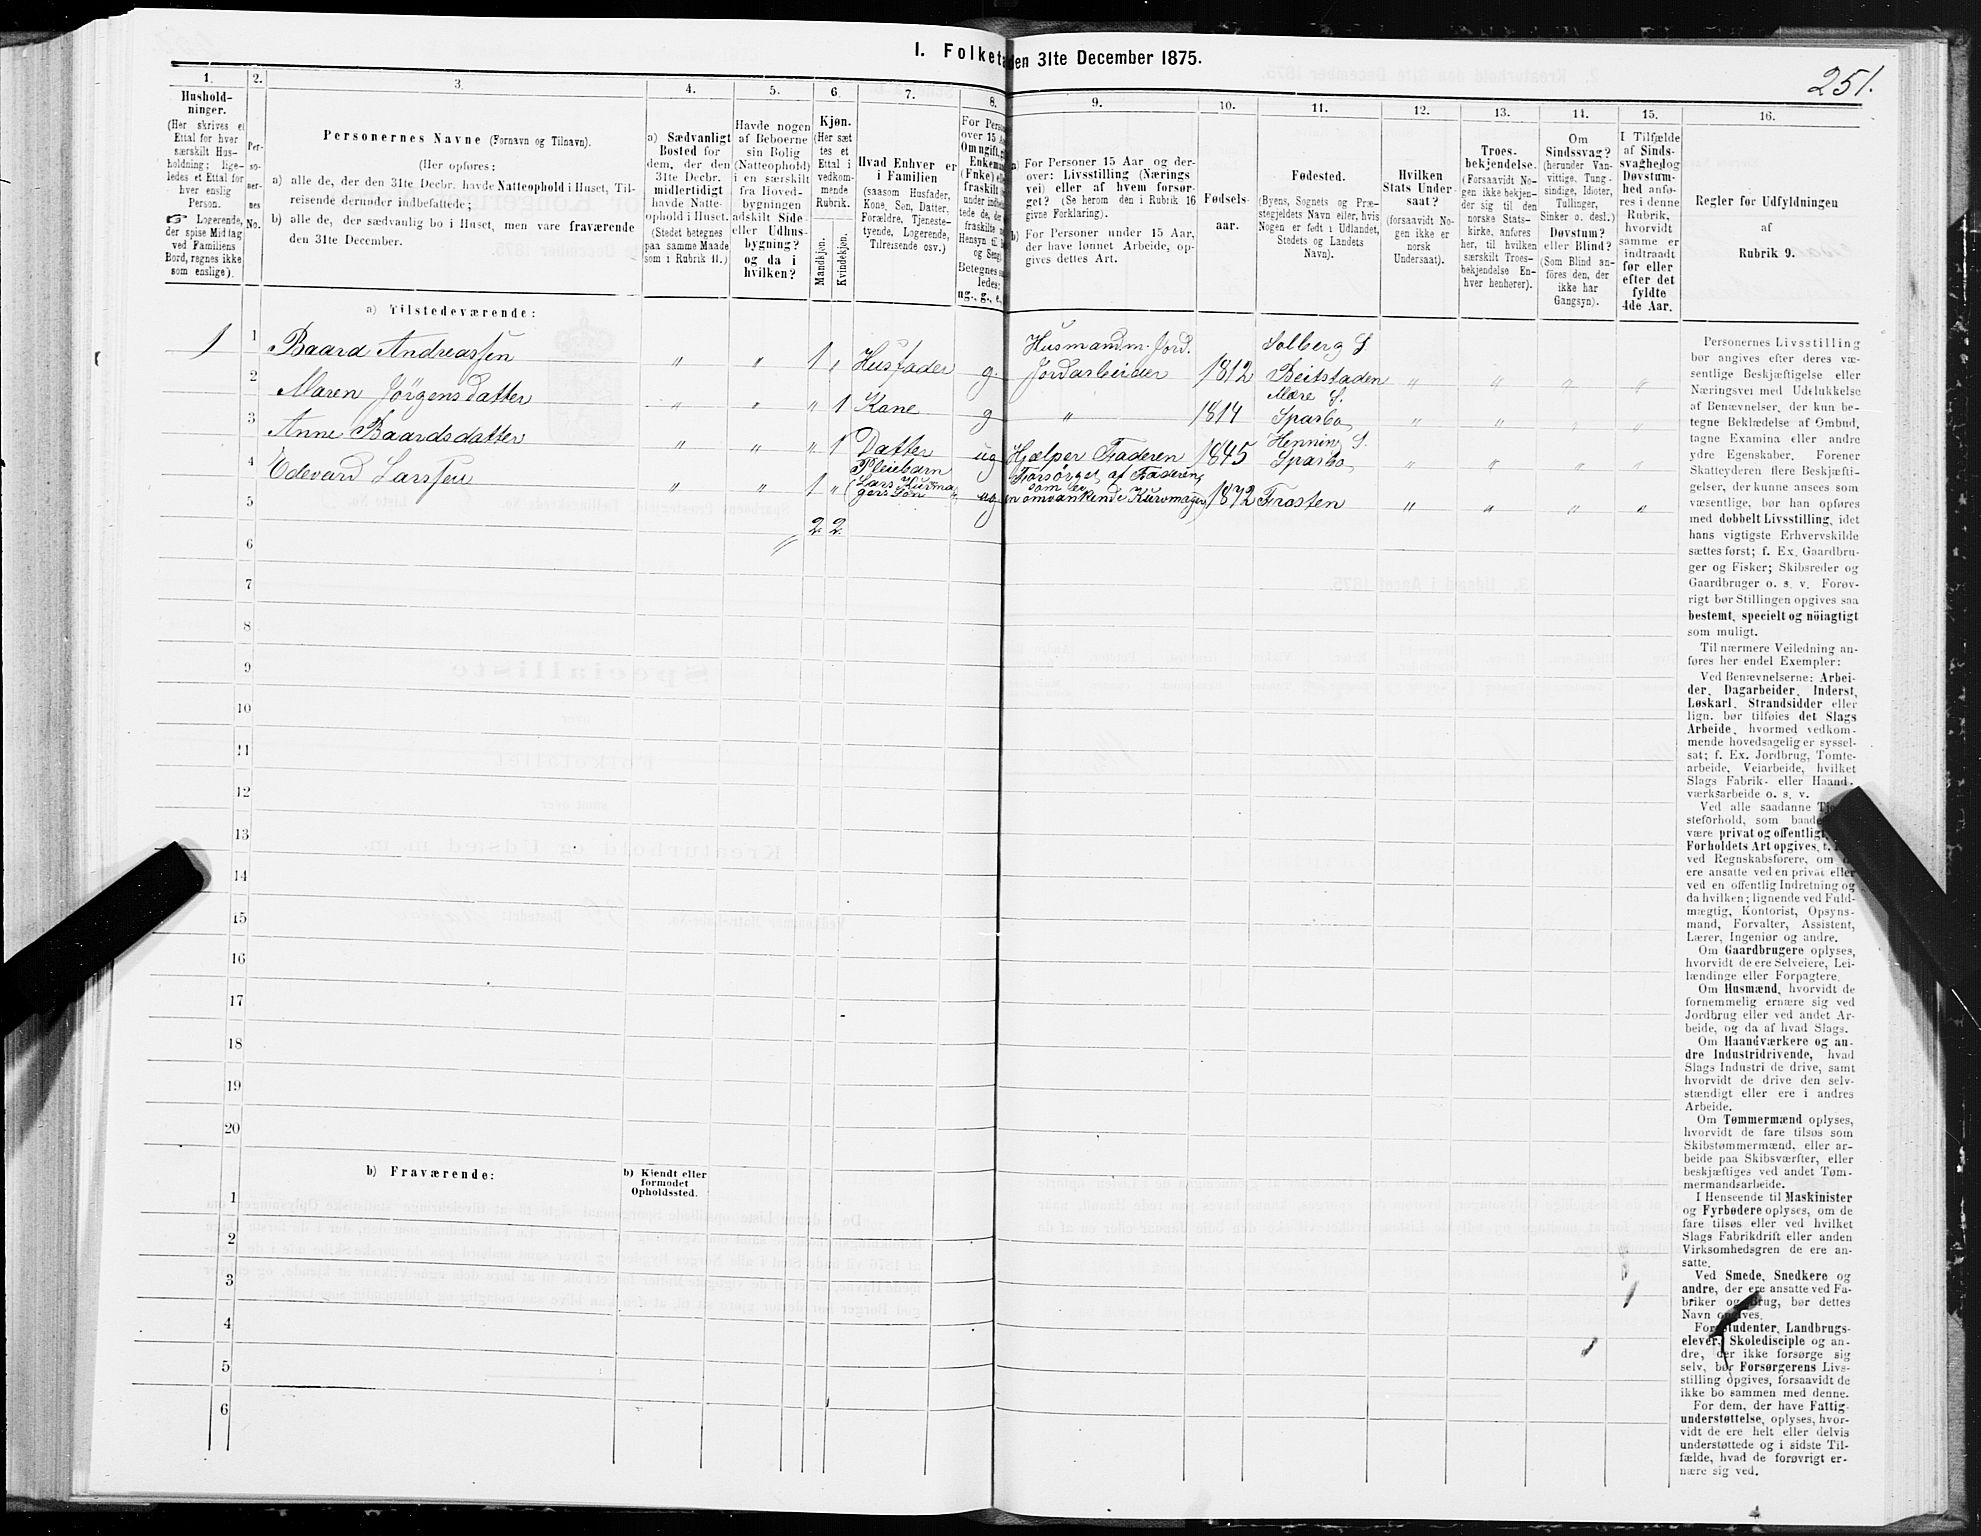 I. Folketa den 31te December 1875.
251.
1.
Hushold-
ninger.
(Her skrives et
Ettal for hver
særskilt Hus-
holdning; lige-
ledes et Ettal for
hver enslig
Person.
☞ Logerende,
der spise Middag
ved Familiens
Bord, regnes ikke
som enslige).
2.
Per-
so-
ner-
nes
No.
3.
Personernes Navne (Fornavn og Tilnavn).
(Her opføres:
a) alle de, der den 31te Decbr. havde Natteophold i Huset, Til-
reisende derunder indbefattede;
b) alle de, der sædvanlig bo i Huset, men vare fraværende
den 31te December.
4.
a) Sædvanligt
Bosted for
dem, der den
31te Decbr.
midlertidigt
havde Natte-
ophold i Huset.
(Stedet betegnes
paa samme Maade
som i Rubrik 11.)
5.
Havde nogen
af Beboerne
sin Bolig
(Natteophold)
i en særskilt
fra Hoved-
bygningen
adskilt Side-
eller Udhus-
bygning?
og da i
hvilken?
6.
Kjøn.
(Her sæt-
tes et
Ettal i
vedkom-
mende
Rubrik.
Mandkjøn.
Kvindekjøn.
7.
Hvad Enhver er
i Familien
(saasom Husfader,
Kone, Søn, Datter,
Forældre, Tjeneste-
tyende, Logerende,
Tilreisende osv.)
8.
For Perso
over 15 A
Om ugift, g
Enkeman
(Fnke) elle
fraskilt
under indbe
tede de, de
fraskilte
Hensyn til
og Seng.
Betegnes s
ledes:
ug., g., e.,
9.
a) For Personer 15 Aar og der-
over: Livsstilling (Nærings
vei) eller af hvem forsør-
get? (Se herom den i Rubrik 16
givne Forklaring).
b) For Personer under 15 Aar,
der have lønnet Arbeide, op-
gives dettes Art.
10.
Fødsels-
aar.
11.
Fødested.
(Byens, Sognets og Præ-
stegjeldets Navn eller, hvis
Nogen er født i Udlandet,
Stedets og Landets
Navn).
12.
Hvilken
Stats Under-
saat?
(forsaavidt No-
gen ikke er
norsk
Undersaat).
13.
Troes-
bekjendelse.
(Forsaavidt No-
gen ikke bekjen-
der sig til den
norske Stats-
kirke, anføres
her, til hvilken
særskilt Troes-
bekjendelse En-
hver henhører).
14.
Om
Sindssvag?
(herunder Van-
vittige, Tung-
sindige, Idioter,
Tullinger,
Sinker o. desl.)
Døvstum?
eller Blind?
(Som Blind an-
føres den, der
ikke har
Gangsyn).
15.
I Tilfælde
af Sinds-
svaghed og
Døvstum-
hed anfø-
res i denne
Rubrik,
hvorvidt
samme er
indtraadt
før eller
efter det
fyldte
4de Aar.
16.
Regler før Udfyldningen
af
Rubrik 9.
a) Tilstedeværende:
1 1 Baard Andreassen " " 1 " Husfader g. Husmand m. Jord. Jordarbeider 1812 Solberg S Beitstaden " " " "
2 Maren Jørgensdatter " " " 1 Kone g " 1814 Mære S. Sparbo " " " "
3 Anne Baardsdatter " " " 1 Datter ug Hjælper Faderen 1845 Henning S. Sparbo " " " "
4 Edevard Larssen " " 1 " Pleiebarn (Lars Kurvmagers Søn " ug Forsørget af Faderen, som er en omvankende Kurvmager 1872 Frosten " " " "
5
2. 2.
6
7
8
9
10
11
12
13
14
15
16
17
18
19
20
b) Fraværende:
b) Kjendt eller
formodet
Opholdssted.
1
2
3
4
5
6
Personernes Livsstilling
bør angives efter deres væ-
sentlige Beskjæftigelse eller
Næringsvei med Udelukkelse
af Benævnelser, der kun be-
tegne Beklædelse af Ombud,
tagne Examina eller andre
ydre Egenskaber. Forener
Skatteyderen flere Beskjæfti-
gelser, der kunne ansees som
væsentlige, bør han opføres
med dobbelt Livsstilling, idet
hans vigtigste Erhvervskilde
sættes først; f. Ex. Gaardbru-
ger og Fisker; Skibsreder og
Gaardbruger o. s. v. Forøv-
rigt bør Stillingen opgives saa
bestemt, specielt og nöiagtigt
som muligt.
Til nærmere Veiledning an-
føres her endel Exempler:
Ved Benævnelserne: Arbei-
der, Dagarbeider, Inderst,
Løskarl, Strandsidder eller
lign. bør tilføies det Slags
Arbeide, hvormed vedkom-
mende hovedsagelig er syssel-
sat; f. Ex. Jordbrug, Tomte-
arbeide, Veiarbeide, hvilket
Slags Fabrik- eller Haand-
værksarbeide o. s. v.
Ved alle saadanne Tje
steforhold, som baade
være privat og offentligt,
Forholdets Art opgives, t.
ved Regnskabsførere, om
ere ansatte ved en privat eller
ved en offentlig Indretning og
da hvilken; lignende ved Fuld-
mægtig, Kontorist, Opsyns-
mand, Forvalter, Assistent,
Lærer, Ingeniør og andre.
Om Gaardbrugere oplyses,
hvorvidt de ere Selveiere, Lei-
lændinge eller Forpagtere.
Om Husmænd, hvorvidt de
fornemmelig ernære sig ved
Jordbrug eller ved andet Ar-
beide, og da af hvad Slags.
Om Haandværkere og an-
dre Industridrivende, hvad
Slags Industri de drive, samt
hvorvidt de drive den selv-
stændigt eller ere i andres
Arbeide.
Om Tømmermænd oplyses,
hvorvidt de fare tilsøs som
Skibstømmermænd, eller ar-
beide paa Skibsværfter, eller
beskjæftiges ved andet Tøm-
mermandsarbeide.
I Henseende til Maskinister
og Fyrbødere oplyses, om de
fare tilsøs eller ved hvilket
Slags Fabrikdrift eller anden
Virksomhedsgren de ere an-
satte.
Ved Smede, Snedkere og
andre, der ere ansatte ved Fa-
briker og Brug, bør dettes
Navn opgives.
For Studenter, Landbrugs-
elever, Skoledisciple og an-
dre, der ikke forsørge sig
selv, bør Forsørgerens Livs-
stilling opgives, forsaavidt de
ikke bo sammen med denne.
For dem, der have Fattig-
understøttelse, oplyses, hvor-
vidt de ere helt eller delvis
understøttede og i sidste Til-
fælde, hvad de forøvrigt er-
nære sig ved.